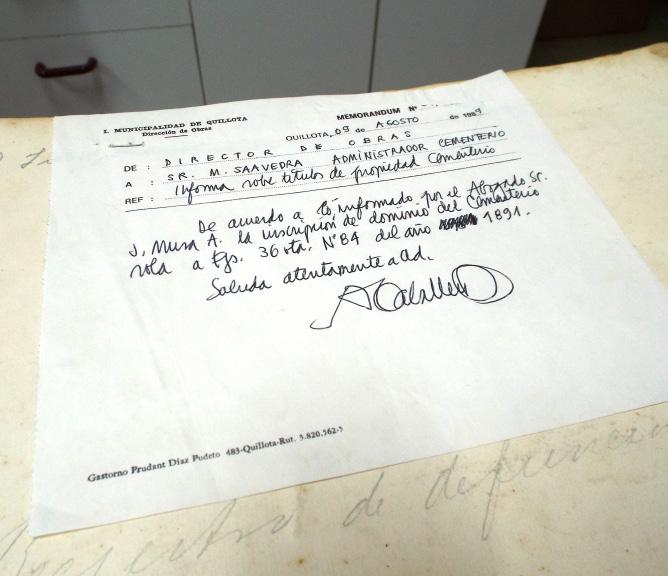 I. MUNICIPALIDAD DE QUILLOTA
Dirección de Obras
MEMORANDUM Nº
QUILLOTA, 09 de AGOSTO de 1989
DE : DIRECTOR DE OBRAS
A : SR. M. SAAVEDRA ADMINISTRADOR CEMENTERIO
REF : Informa sobre títulos de propiedad Cementerio
De acuerdo a lo informado por el Abogado Sr.
J. Musa A. la inscripción de dominio del Cementerio
rola a fjs. 36 vta. Nº 84 del año 1891.
Saluda atentamente a Ud.
Gastorno Prudant Díaz Pudeto 483-Quillota-Rut. 5.820.562-5
Registro de defuncion